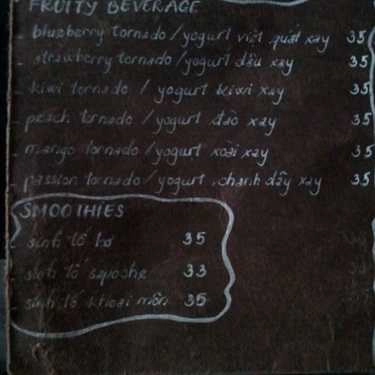 FRUITY BEVERAGE
- blueberry tornado / yogurt việt quất xay 35
- strawberry tornado / yogurt dâu xay 35
- kiwi tornado / yogurt kiwi xay 35
- peach tornado / yogurt đào xay 35
- mango tornado / yogurt xoài xay 35
- passion tornado / yogurt chanh dây xay 35
SMOOTHIES
- sinh tố bơ 35
- sinh tố sapoche 33
- sinh tố khoai môn 35